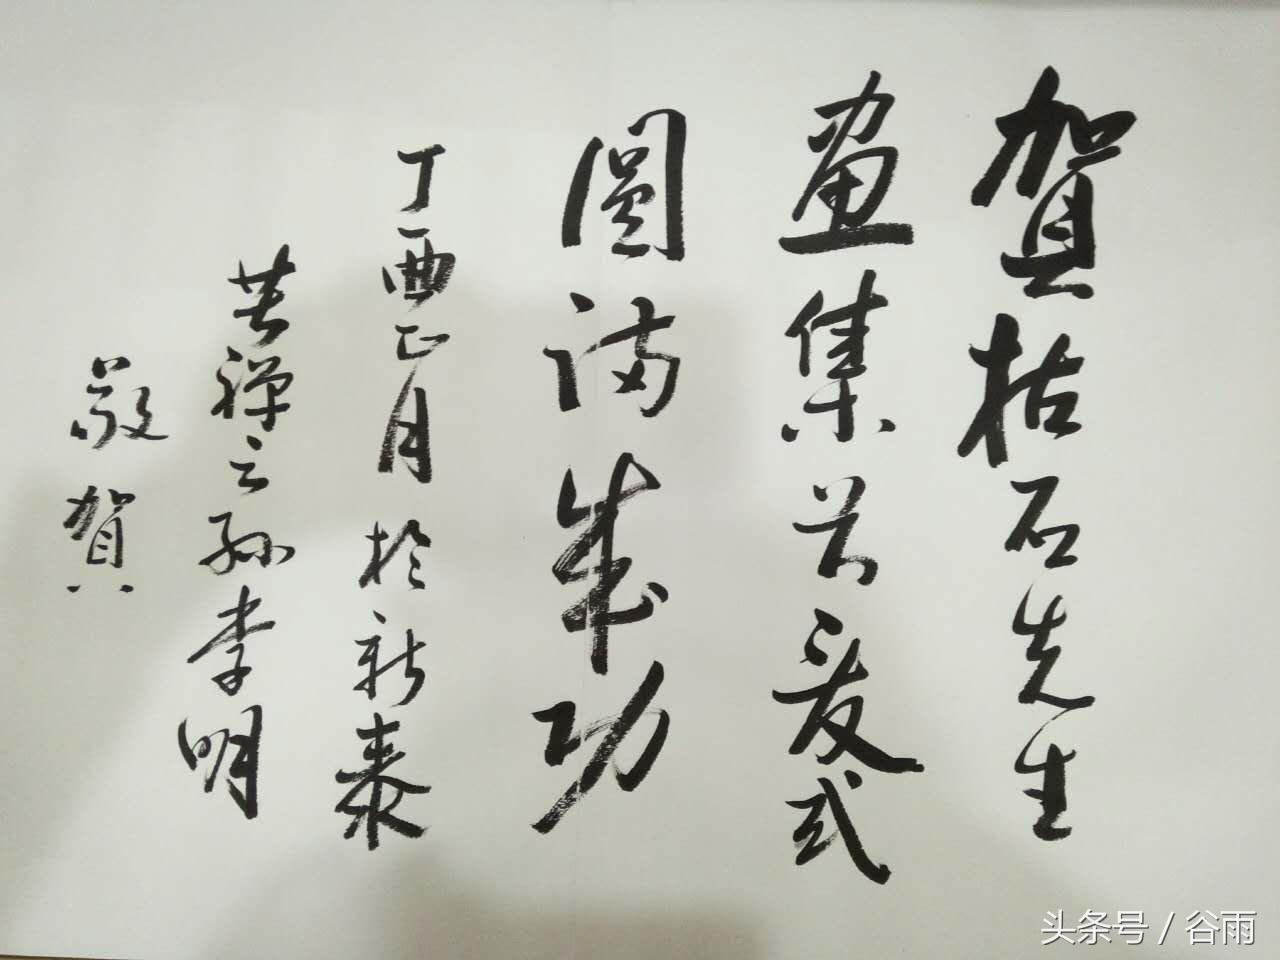 賀枯石先生
画集首发式
圓满成功
丁酉正月於新泰
苦禅之孙李明
敬賀
头条号 / 谷雨